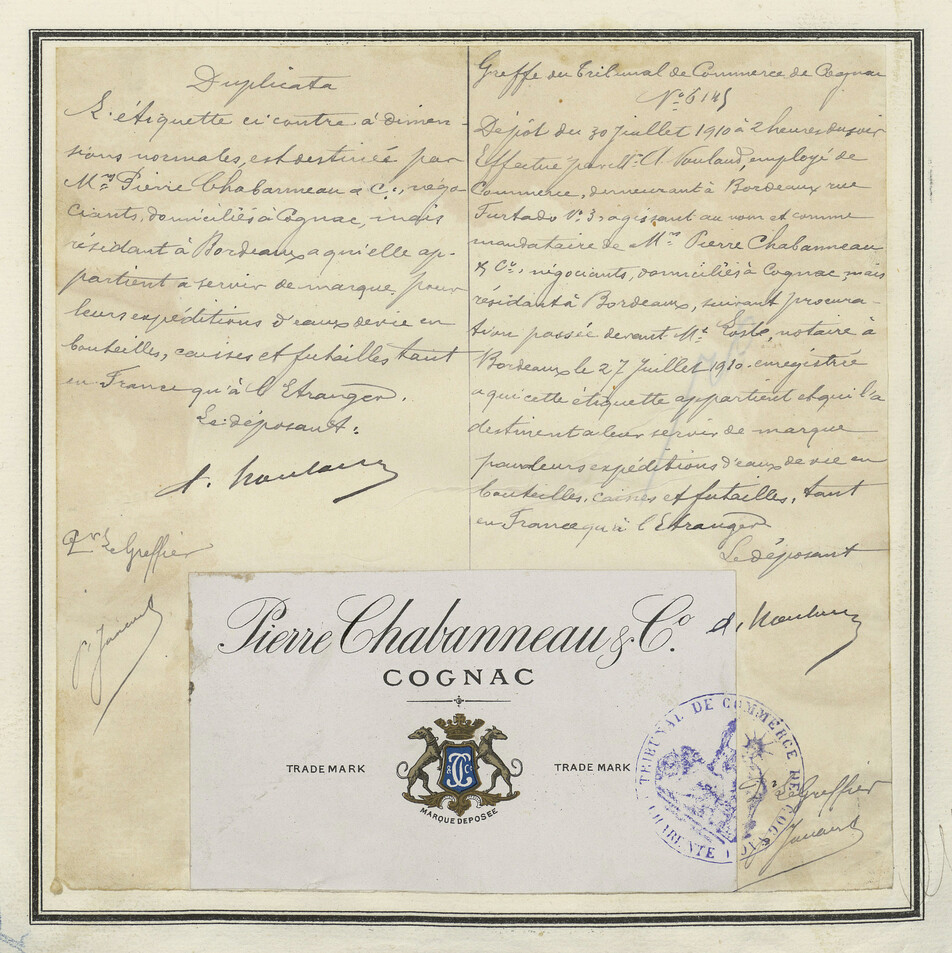 Duplicata
L'étiquette ci contre à dimen-
sions normales, est destinée par
Mrs Pierre Chabanneau & Co, négo-
ciants, domiciliés à Cognac, mais
résidant à Bordeaux a qu'elle ap-
partient a servir de marque pour
leurs expéditions d'eaux de vie en
bouteilles, caisses et futailles tant
en France qu'à l'Etranger.
Le déposant.
Pr Le Greffier
Greffe du Tribunal de Commerce de Cognac
No 6145
Dépôt du 30 Juillet 1910 à 2 heures du soir
Effectué par Mr A. employé de
Commerce, demeurant à Bordeaux rue
Furtado No 3, agissant au nom et comme
mandataire de Mrs Pierre Chabanneau
& Co, négociants, domiciliés à Cognac, mais
résidant à Bordeaux, suivant procura-
tion passée devant Me notaire à
Bordeaux le 27 Juillet 1910 enregistrée
a qui cette étiquette appartient et qui l'a
destinent a leur servir de marque
pour leurs expéditions d'eaux de vie en
bouteilles, caisses et futailles, tant
en France qu'à l'Etranger
Le déposant
Pierre Chabanneau & Co.
COGNAC
TRADE MARK
TRADE MARK
MARQUE DEPOSÉE
TRIBUNAL DE COMMERCE DE COGNAC
CHARENTE
Pr Le Greffier